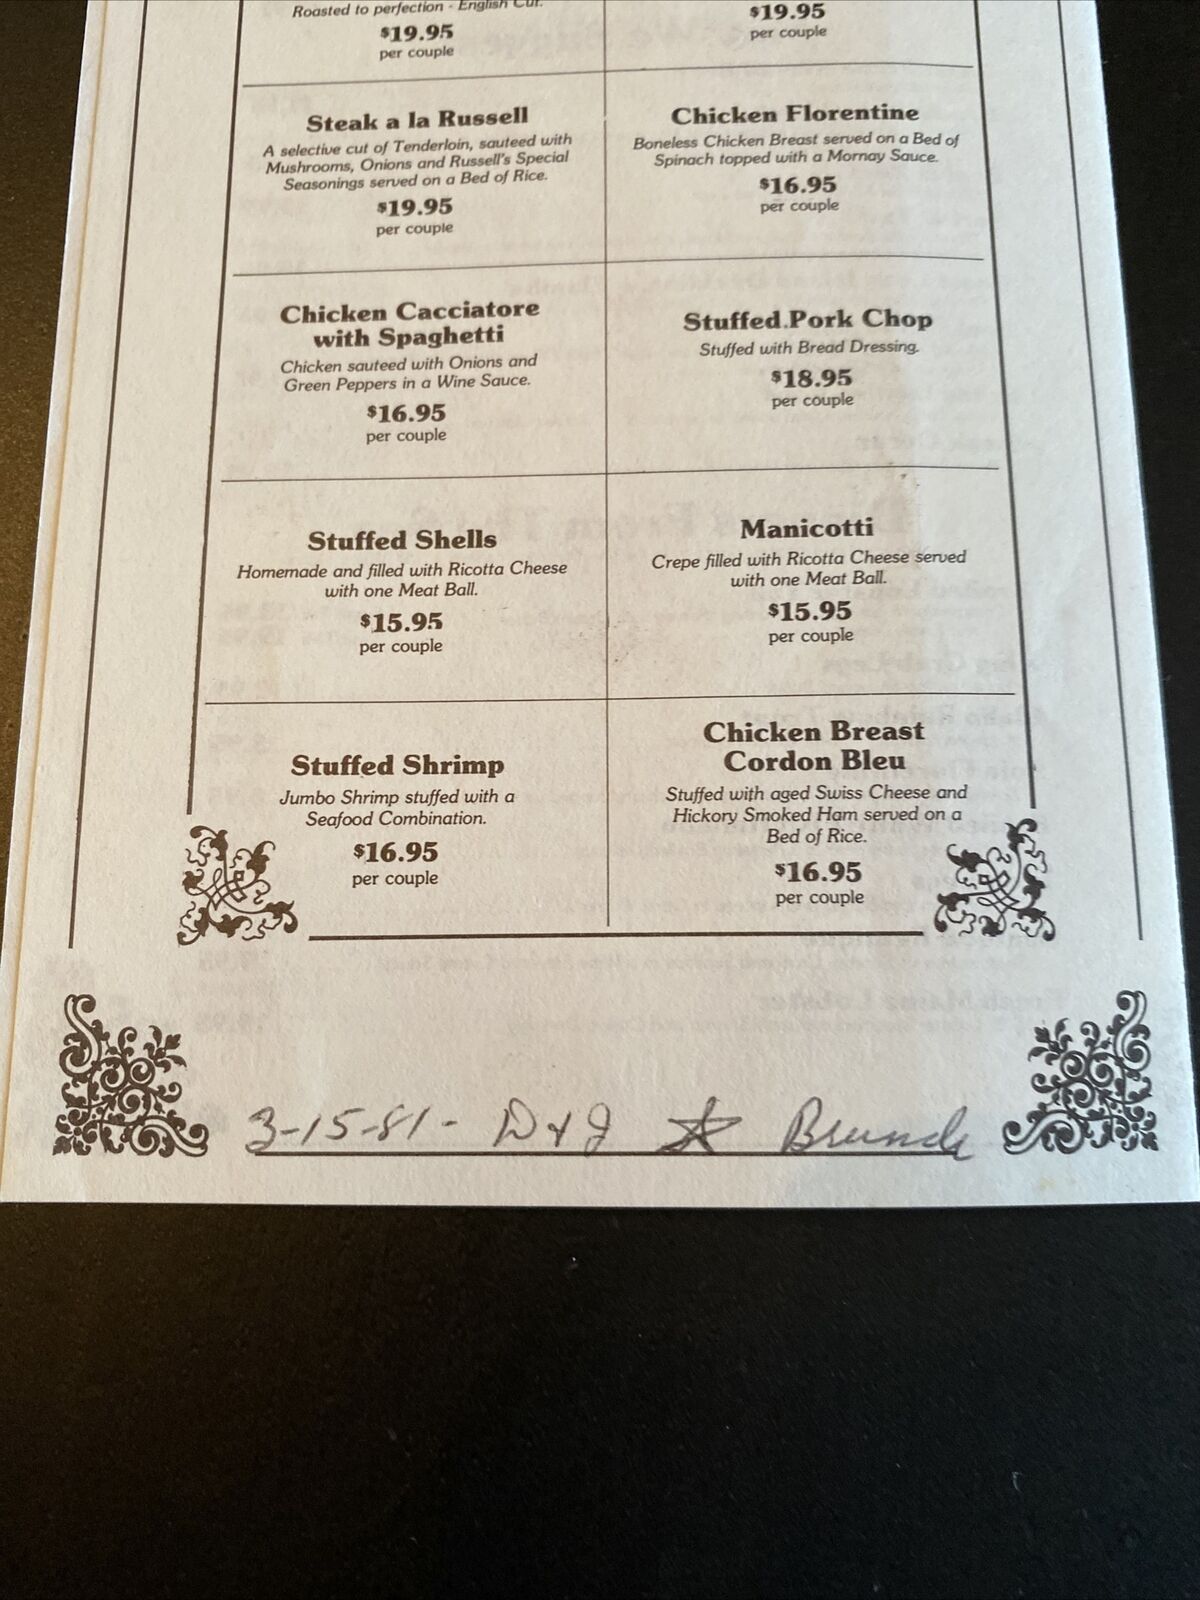 Roasted to perfection - English Cut.
$19.95
per couple
$19.95
per couple
Steak a la Russell
A selective cut of Tenderloin, sauteed with
Mushrooms, Onions and Russell's Special
Seasonings served on a Bed of Rice.
$19.95
per couple
Chicken Florentine
Boneless Chicken Breast served on a Bed of
Spinach topped with a Mornay Sauce.
$16.95
per couple
Chicken Cacciatore
with Spaghetti
Chicken sauteed with Onions and
Green Peppers in a Wine Sauce.
$16.95
per couple
Stuffed Pork Chop
Stuffed with Bread Dressing.
$18.95
per couple
Stuffed Shells
Homemade and filled with Ricotta Cheese
with one Meat Ball.
$15.95
per couple
Manicotti
Crepe filled with Ricotta Cheese served
with one Meat Ball.
$15.95
per couple
Stuffed Shrimp
Jumbo Shrimp stuffed with a
Seafood Combination.
$16.95
per couple
Chicken Breast
Cordon Bleu
Stuffed with aged Swiss Cheese and
Hickory Smoked Ham served on a
Bed of Rice.
$16.95
per couple
3-15-81 - D + J